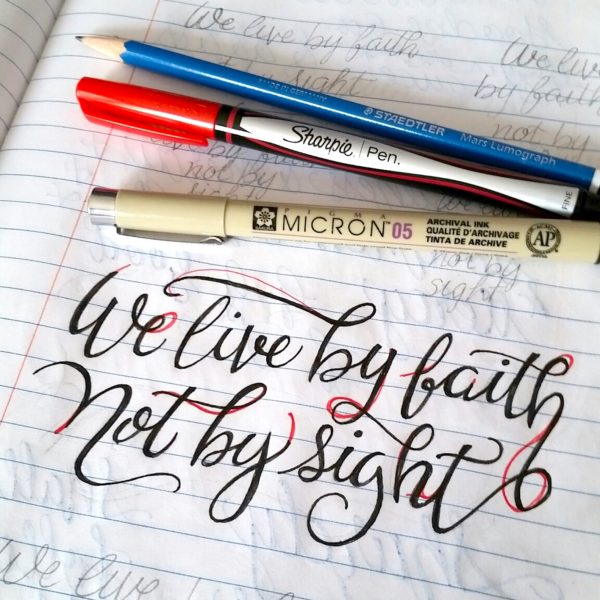 We live by faith
sight
We live
by faith
not by
MADE IN GERMANY
STAEDTLER
Mars Lumograph
Sharpie Pen.
FINE
not by
sight
PIGMA
MICRON 05
ARCHIVAL INK
QUALITÉ D'ARCHIVAGE
TINTA DE ARCHIVE
AP
not by
sight
We live by faith
Not by sight
We live